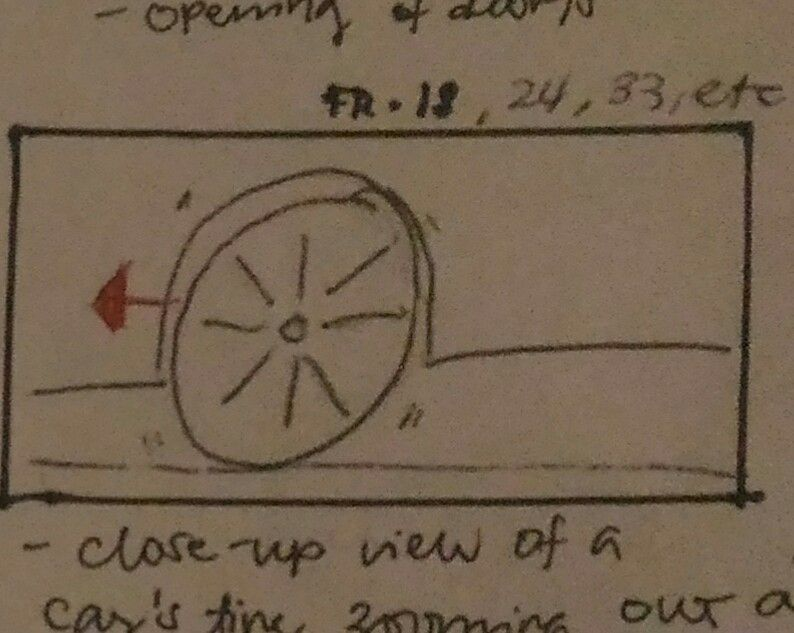 - opening of
FR. 18, 24, 33, etc
- close-up view of a
car's tire zooming out a